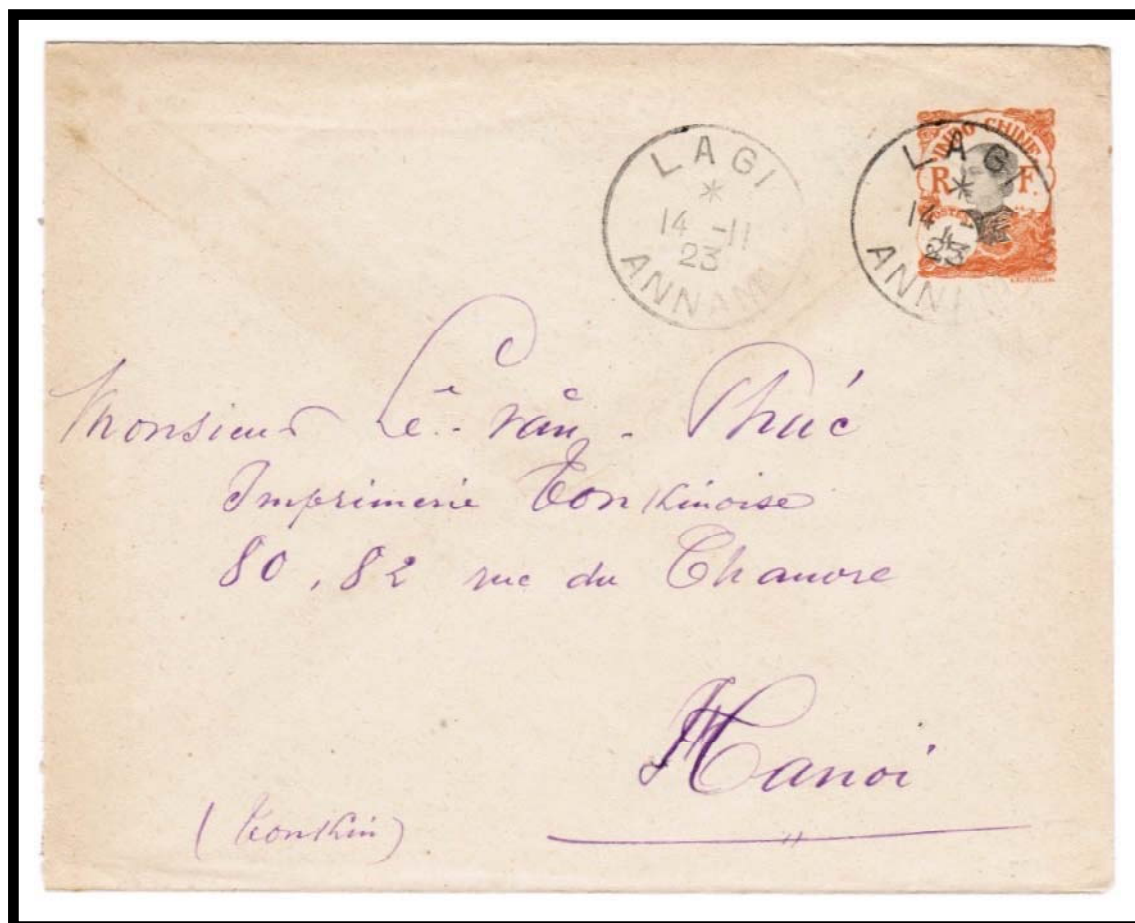 LAGI
*
14 -11
23
ANNAM
INDO-CHINE
R F.
LAGI
*
14
23
ANNAM
Monsieur Lê-văn-Phúc
Imprimerie Tonkinoise
80, 82 rue du Chanvre
Hanoi
(Tonkin)